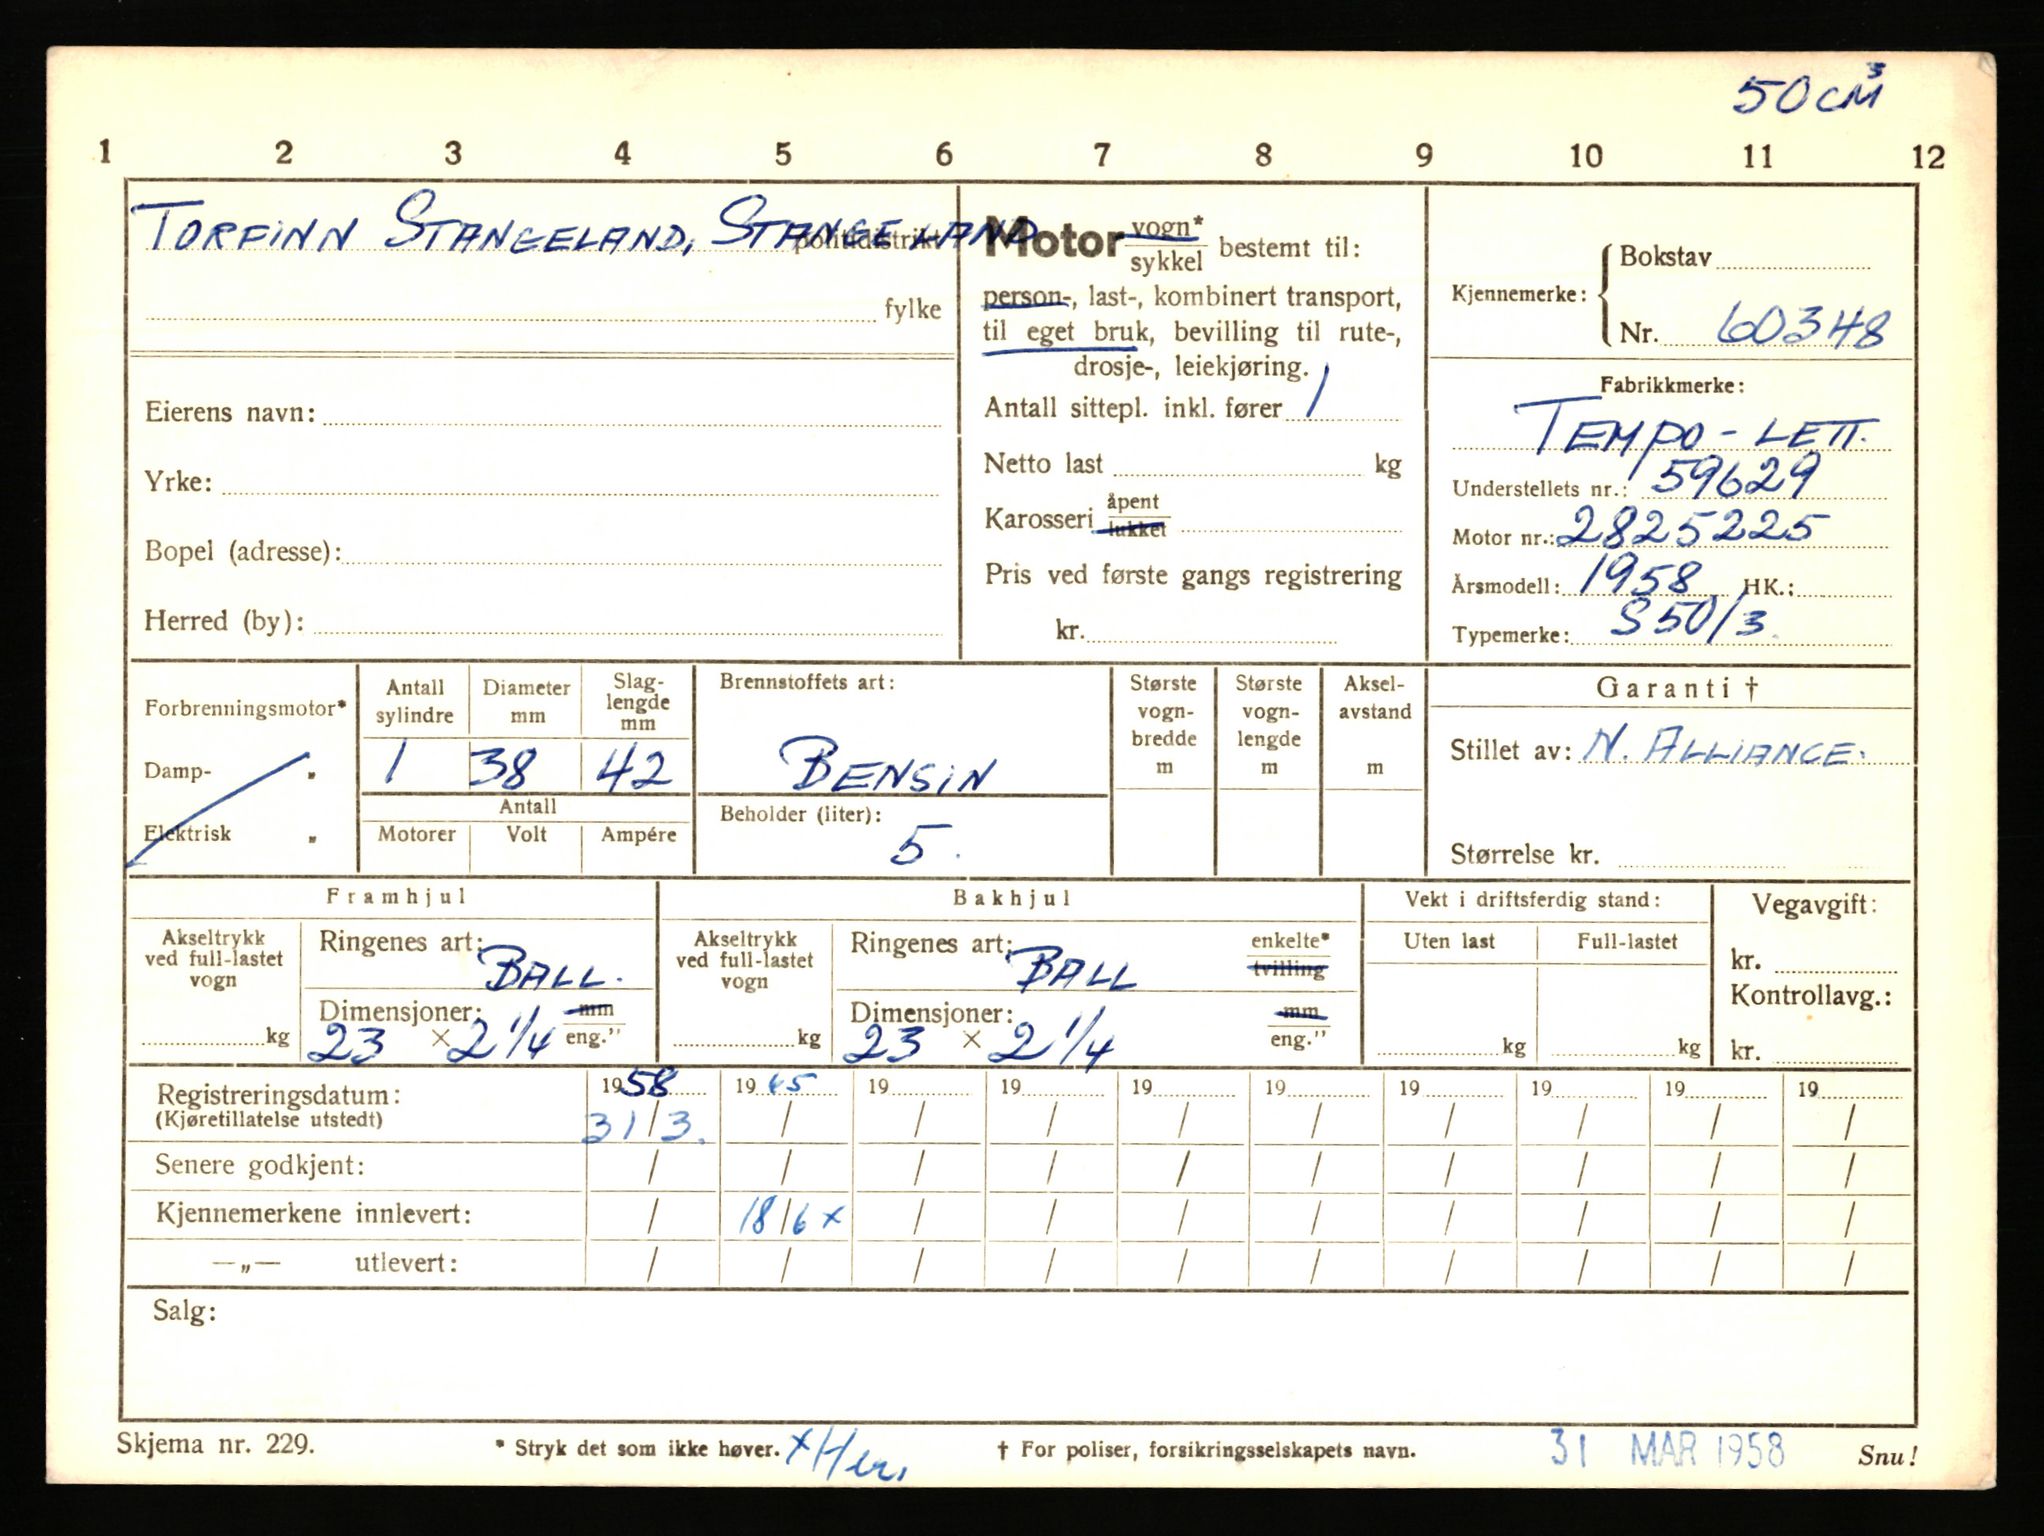 50 CM³
1 2 3 4 5 6 7 8 9 10 11 12
TORFINN STANGELAND, STANGELAND
politidistrikt
fylke
Eierens navn:
Yrke:
Bopel (adresse):
Herred (by):
Motor vogn* / sykkel bestemt til:
person-, last-, kombinert transport,
til eget bruk, bevilling til rute-,
drosje-, leiekjøring.
Antall sittepl. inkl. fører 1
Netto last kg
Karosseri åpent / lukket
Pris ved første gangs registrering
kr.
Kjennemerke: Bokstav
Nr. 60348
Fabrikkmerke:
TEMPO - LETT.
Understellets nr.: 59629
Motor nr.: 2825225
Årsmodell: 1958 HK.:
Typemerke: S 50/3.
Forbrenningsmotor*
Damp- "
Elektrisk "
Antall sylindre
1
Diameter mm
38
Slag-lengde mm
42
Antall
Motorer Volt Ampére
Brennstoffets art:
BENSIN
Beholder (liter):
5.
Største vogn-bredde m
Største vogn-lengde m
Aksel-avstand m
Garanti †
Stillet av: N. ALLIANCE.
Størrelse kr.
Framhjul
Akseltrykk ved full-lastet vogn
kg
Ringenes art:
BALL.
Dimensjoner: mm / eng."
23 × 2 1/4
Bakhjul
Akseltrykk ved full-lastet vogn
kg
Ringenes art: enkelte* / tvilling
BALL
Dimensjoner: mm / eng."
23 × 2 1/4
Vekt i driftsferdig stand:
Uten last Full-lastet
kg kg
Vegavgift:
kr.
Kontrollavg.:
kr.
Registreringsdatum: 1958 1965 19 19 19 19 19 19 19 19
(Kjøretillatelse utstedt) 31/3. / / / / / / / / /
Senere godkjent: / / / / / / / / / /
Kjennemerkene innlevert: / 18/6 x / / / / / / / /
—„— utlevert: / / / / / / / / / /
Salg:
Skjema nr. 229. * Stryk det som ikke høver. † For poliser, forsikringsselskapets navn. 31 MAR 1958 Snu!